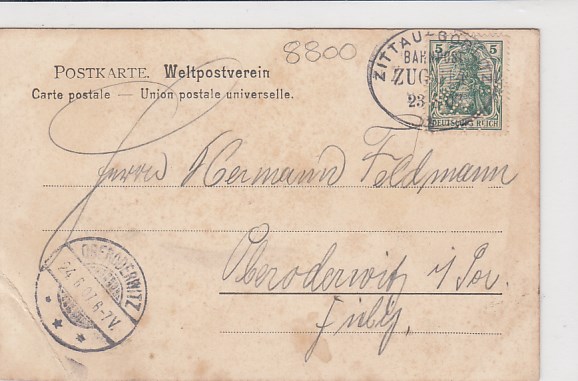 8800
POSTKARTE. Weltpostverein
Carte postale — Union postale universelle.
ZITTAU-GÖR
BAHNPOST
ZUG
23
5 5
DEUTSCHES REICH
Herrn Hermann Feldmann
Oberoderwitz i/
OBERODERWITZ
24.6.07.6-7V.